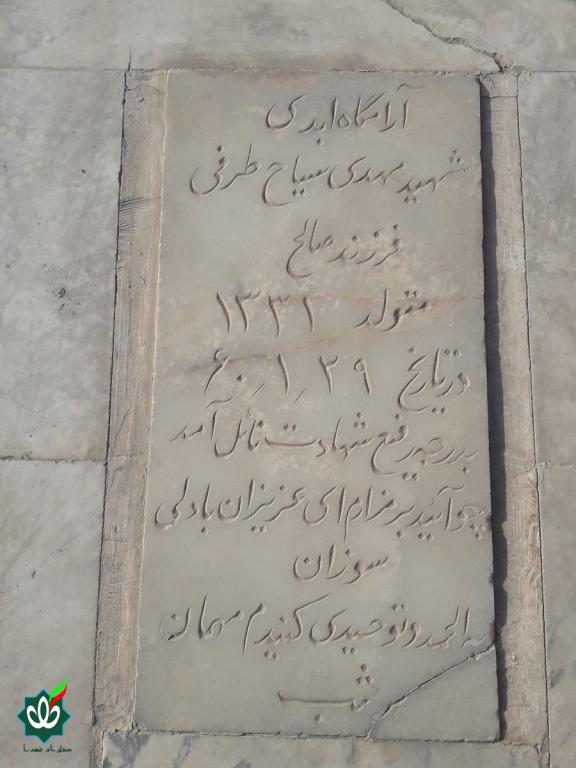 آرامگاه ابدی
شهید مهدی سیاح طرفی
فرزند صالح
متولد ۱۳۳۱
در تاریخ ۲۹ر۱ر۶۰
بدرجه رفیع شهادت نائل آمد
چو آئید بر مزارم ای عزیزان با دلی
سوزان
به الحمد و توحیدی کنیدم مهمان
شب